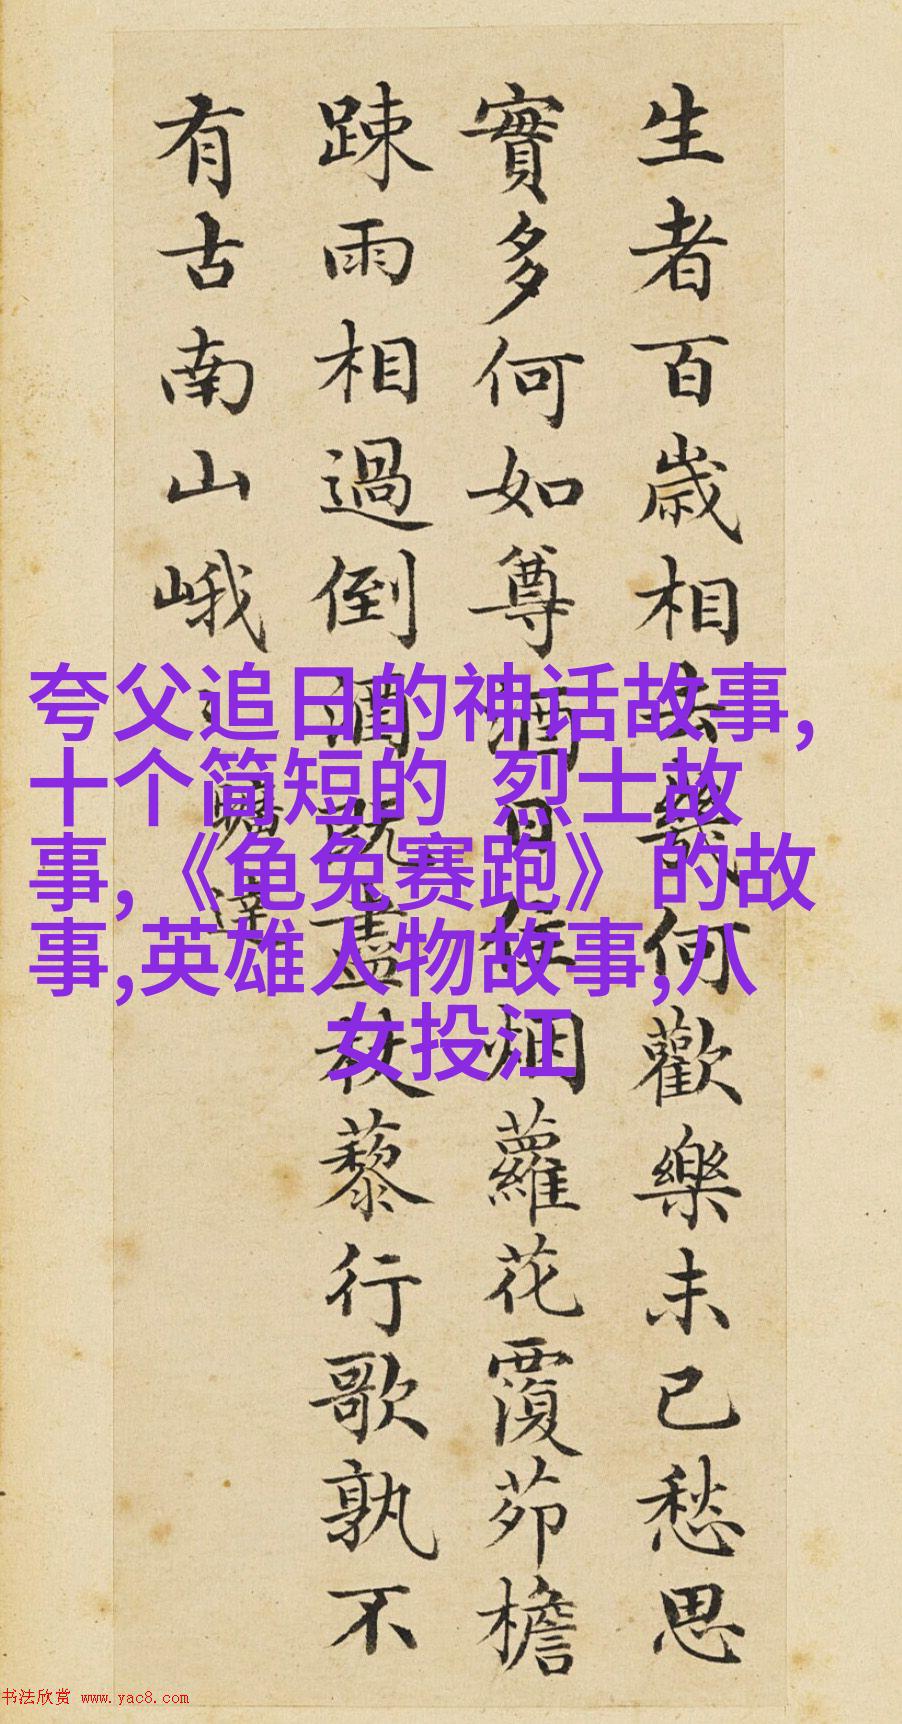 生者百歳相去幾何歡樂未已愁思
實多何如尊酒日往烟蘿花覆茆檐
踈雨相過倒酒既盡杖藜行歌孰不
有古南山峨〻曠達
夸父追日的神话故事,
十个简短的 烈士故
事,《龟兔赛跑》的故
事,英雄人物故事,八
女投江
书法欣赏 www.yac8.com